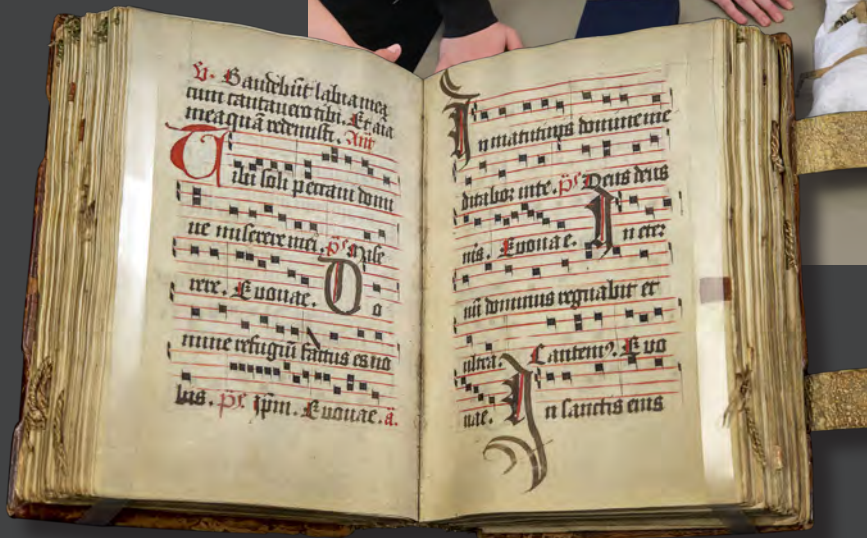 V. Gaudebūt labia mea
cum cantauero tibi. Et aīa
mea quā redemisti. Ant
Tibi soli peccaui domi
ne miserere mei. ps Mise
rere. Euouae. Do
mine refugiū factus es no
bis. ps ipm. Euouae. ā.
In matutinis domine me
ditabor in te. ps Deus deus
ms. Euouae. In eter
nū dominus regnabit et
ultra. Cantem9. Euo
uae. In sanctis eius